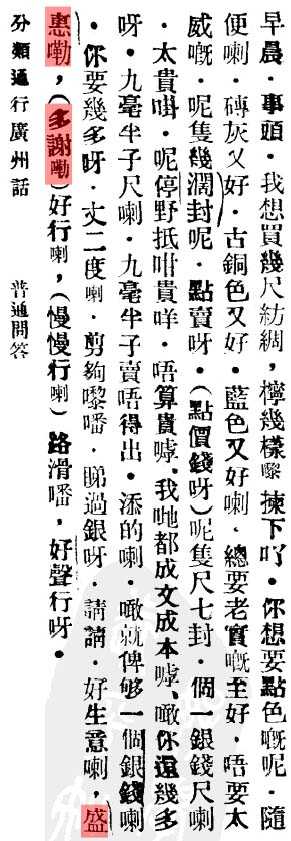 早晨·事頭·我想買幾尺紡綢，擰幾樣嚟揀下吖·你想要點色嘅呢·隨
便喇·磚灰又好·古銅色又好·藍色又好喇·總要老實嘅至好·唔要太
威嘅·呢隻幾濶封呢·點賣呀·(點價錢呀)呢隻尺七封·個一銀錢尺喇
·太貴啩·呢停野抵咁貴咩·唔算貴嘑、我哋都成文成本嘑、噉你還幾多
呀·九毫半子尺喇·九毫半子賣唔得出·添的喇·噉就俾够一個銀錢喇
·你要幾多呀·丈二度喇·剪夠嚟噃·睇過銀呀·請請·好生意喇，盛
惠嘞，(多謝嘞)好行喇，(慢慢行喇)路滑噃，好聲行呀·
分類通行廣州話　普通問答